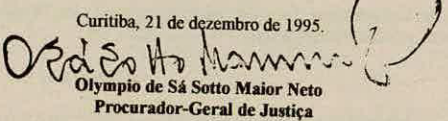 Curitiba, 21 de dezembro de 1995.
Olympio de Sá Sotto Maior Neto
Procurador-Geral de Justiça